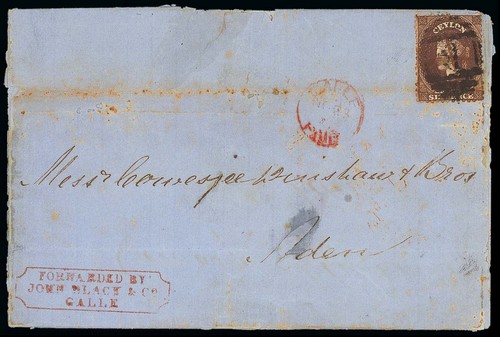 CEYLON
SIXPENCE
GALLE
PAID
Messrs Cowasjee Dinshaw & Bros
Aden
FORWARDED BY
JOHN BLACK & Co
GALLE